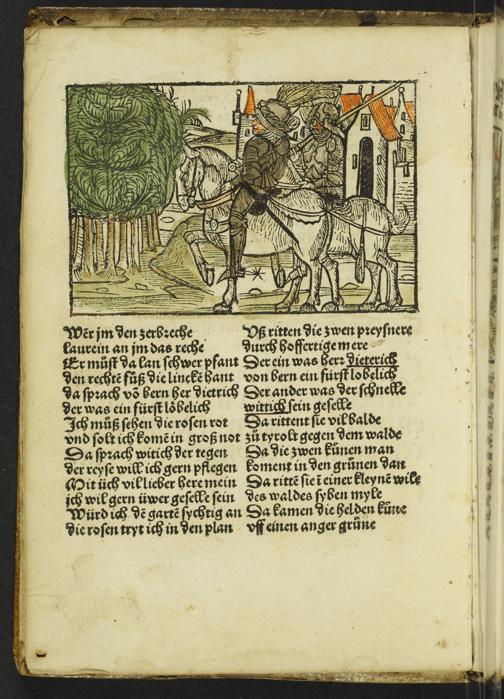 Wer jm den zerbreche
laurein an jm das reche
Er můst da lan schwer pfant
den rechtē fůß die lincke hant
da sprach võ bern her dietrich
der was ein fürst löbelich
Ich můß sehen die rosen rot
vnd solt ich komē in groß not
Da sprach witich der tegen
der reyse will ich gern pflegen
Mit üch vil lieber here mein
ich wil gern üwer geselle sein
Würd ich dē gartē sychtig an
die rosen tryt ich in den plan
Vß ritten die zwen preysnere
durch hoffertige mere
Der ein was herr dieterich
von bern ein fürst lobelich
Der ander was der schnelle
wittich sein geselle
Da rittent sie vil balde
zů tyrolt gegen dem walde
Da die zwen kůnen man
koment in den grünen dan
Da rittē sie ī einer kleynē wile
des waldes syben myle
Da kamen die helden kůne
vff einen anger grüne